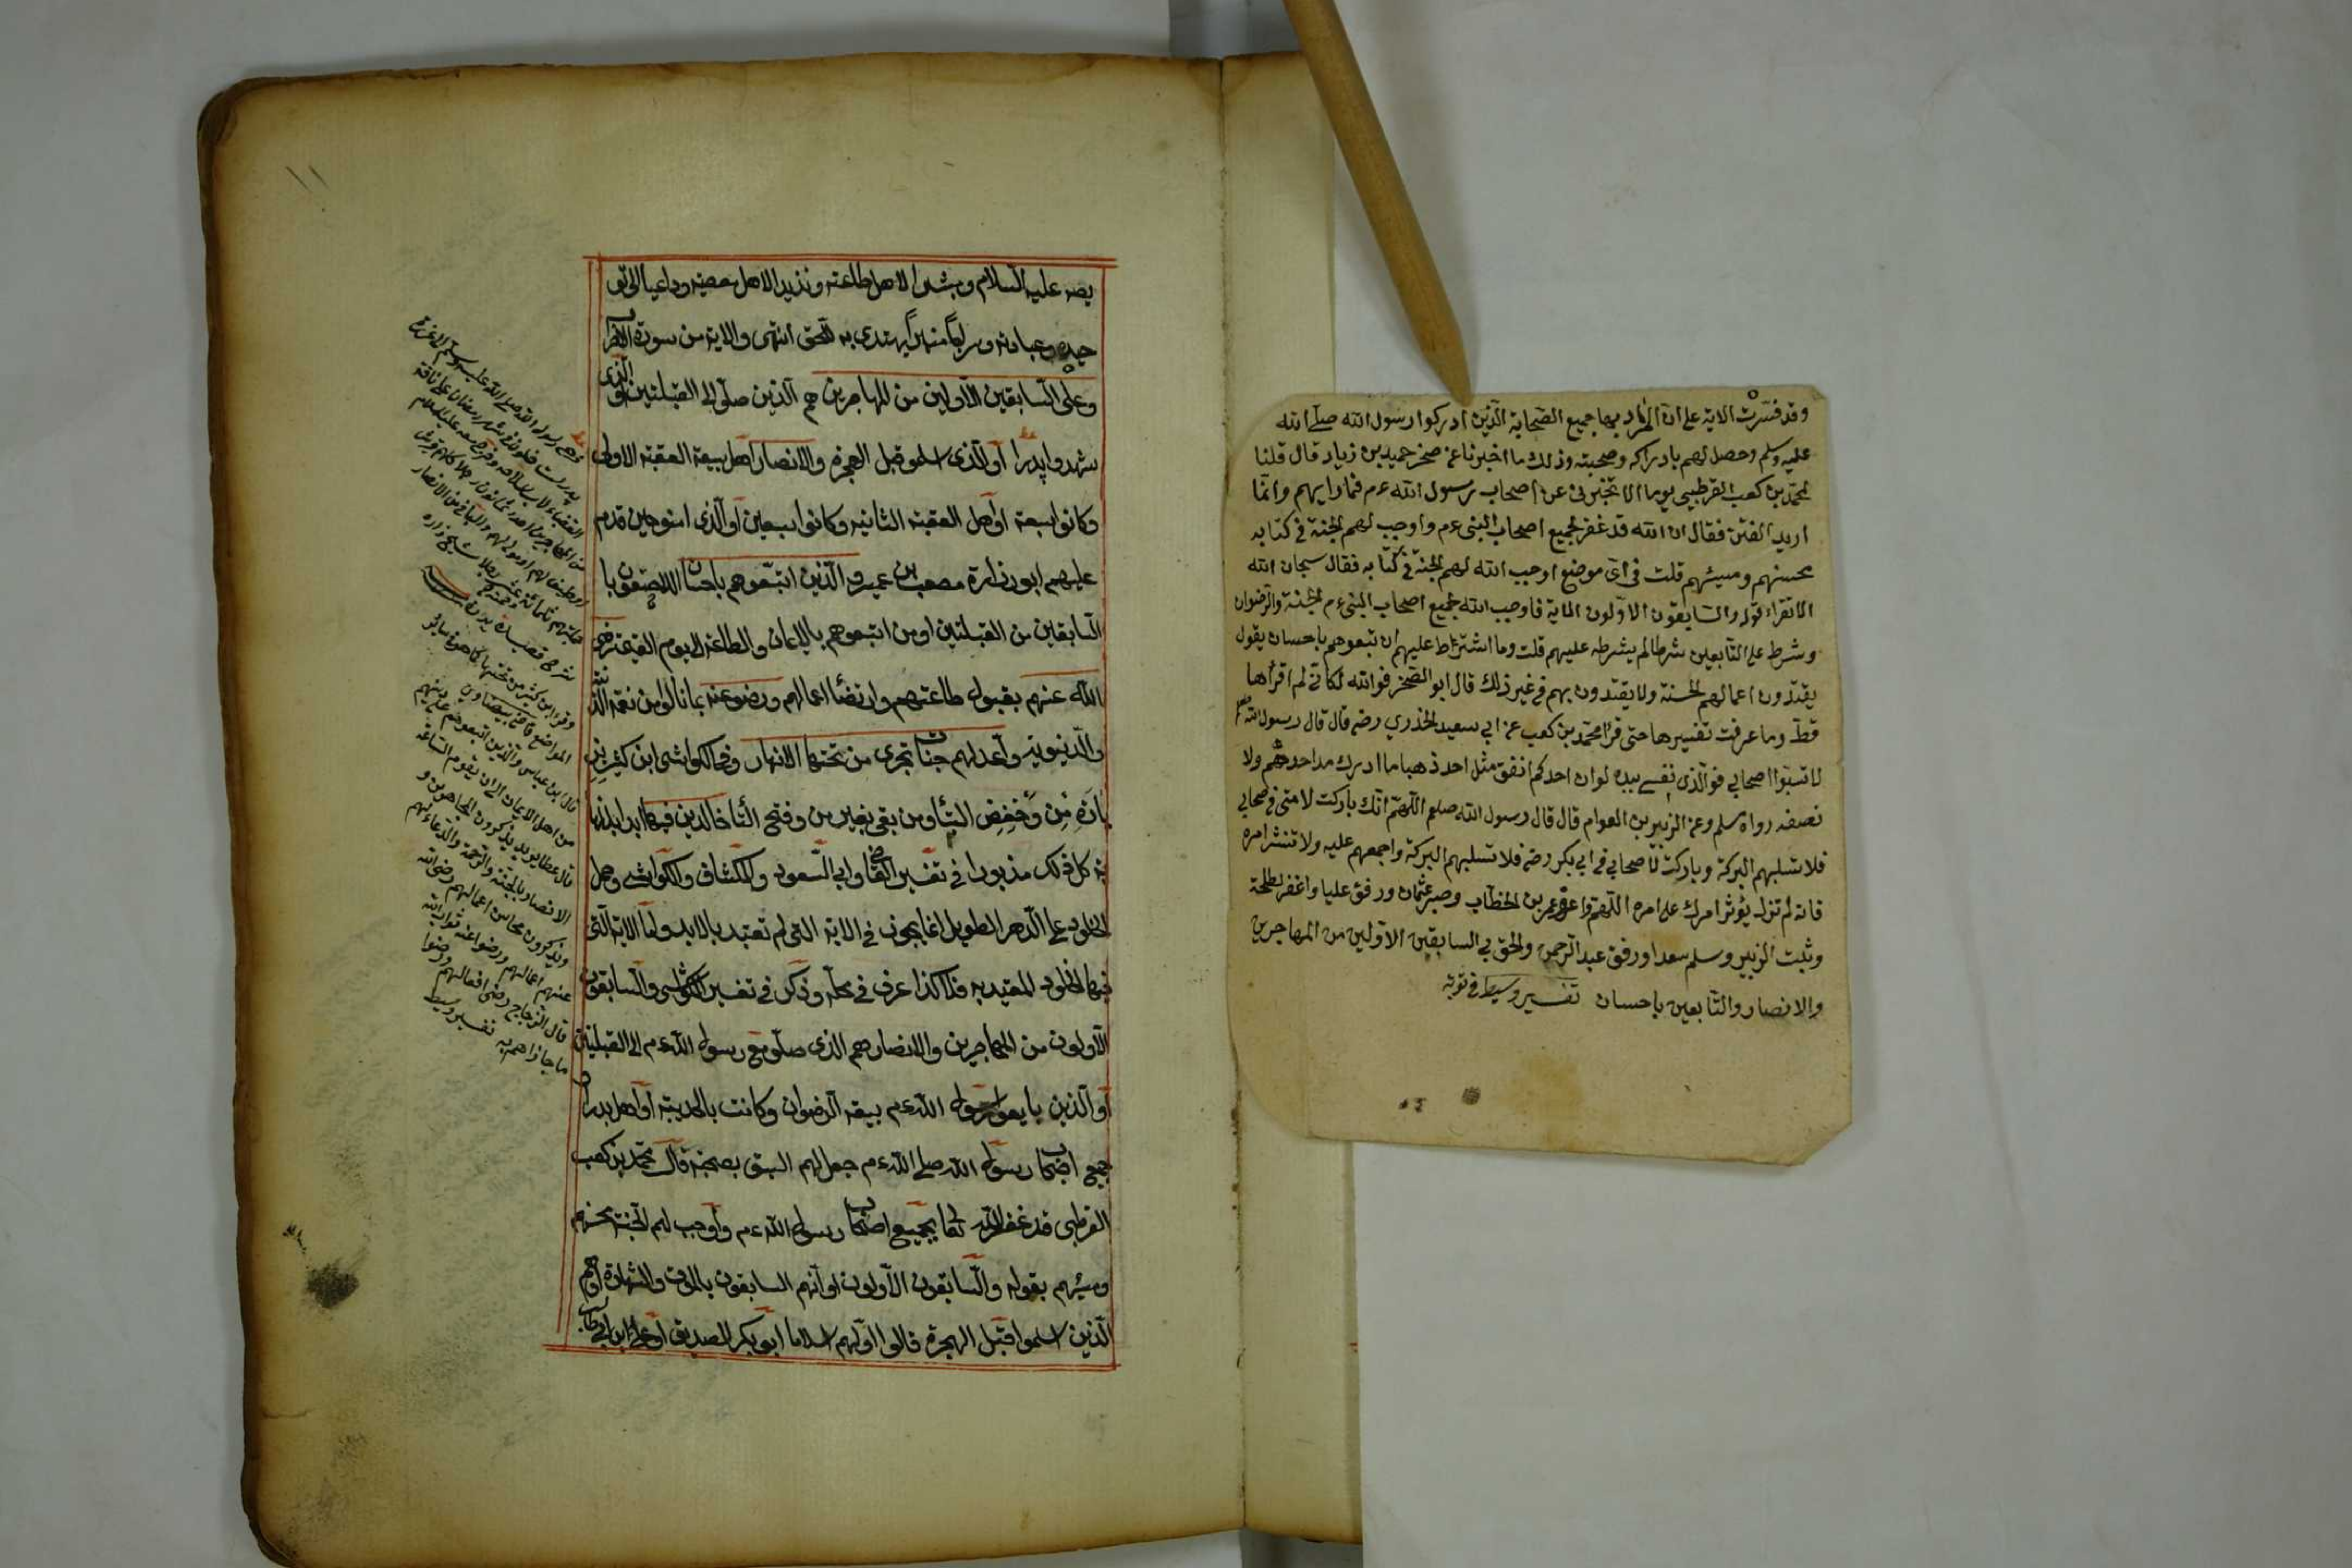 ١١
بصه عليه السلام ومبشرا لاهل طاعته ونذيرا لاهل معصيته وداعيا الى تو
حيده وعبادته وسراجا منيرا يهتدى به للحق انتهى والاية من سورة الاحزا
وعلى السابقين الاولين من المهاجرين هم الذين صلوا الى القبلتين او الذى
شهدوا بدرا او الذى اسلمو قبل الهجرة والانصار اهل بيعة العقبة الاولى
وكانوا سبعة او اهل العقبة الثانية وكانوا سبعين او الذى امنو حين قدم
عليهم ابو زرارة مصعب بن عمير والذين اتبعوهم باحسان اللاحقون با
السابقين من القبلتين او من اتبعوهم بالايمان والطاعة الى يوم القيمة رضى
الله عنهم بقبول طاعتهم وارتضا اعمالهم ورضوعنه بما نالوا من نعمه الدينية
والدنيوية واعد لهم جنات تجرى من تحتها الانهار وفى الكواشى ابن كثير بز
يادة من وخفض التا ومن بقى بغير من وفتح التا خالدين فيها ابدا
كل ذلك مذبورا فى تفسير القاضى وابى السعود والكشاف والكواشى وحمل
الخلود على الدهر الطويل انما يجوز فى الاية التى لم تقيد بالابد واما الاية التى
فيها الخلود المقيد به فلا كذا عرف فى محله وذكر فى تفسير الكواشى والسابقون
الاولون من المهاجرين والانصار هم الذى صلو مع رسول الله ءم الى القبلتين
او الذين بايعوا رسول الله ءم بيعة الرضوان وكانت بالحديبية او اهل بدر او
جميع اصحاب رسول الله صلى الله ءم جعل لهم السبق بصحبته قال محمد بن كعب
القرظى قد غفر الله تعالى لجميع اصحاب رسول الله ءم واوجب لهم الجنة محسنهم
ومسيئهم بقوله والسابقون الاولون او انهم السابقون بالموت والشهادة او هم
الذين اسلموا قبل الهجرة قالوا اولهم اسلاما ابو بكر الصديق او على ابن ابى طالب
شرح قصيدة بردة
وقرأ ابن كثير من تحتها كما هو فى سائر
المواضع قاضى بيضاوى
قال ابن عباس والذين اتبعوهم على دينهم
من اهل الايمان الى ان تقوم الساعة
قال عطا يريد يذكرون المهاجرين و
الانصار بالجنة والرحمة والدعاء لهم
ويذكرون محاسن اعمالهم رضى الله
عنهم اعمالهم ورضوا عنه ثواب الله
قال الزجاج رضى افعالهم ورضوا
ما جازاهم به تفسير وسيط
وقد فسرت الاية على ان المراد بها جميع الصحابة الذين ادركوا رسول الله صلى الله
عليه وسلم وحصل لهم بادراكه وصحبته وذلك ما اخبرنا عن صخر حميد بن زياد قال قلنا
لمحمد بن كعب القرظيى يوما الا تخبرنى عن اصحاب رسول الله ءم فيما رايهم وانما
اريد الفتن فقال ان الله قد غفر لجميع اصحاب النبى ءم واوجب لهم الجنة فى كتابه
محسنهم ومسيئهم قلت فى اى موضع اوجب الله لهم الجنة فى كتابه فقال سبحان الله
الا تقراء قوله والسابقون الاولون الماية فاوجب الله لجميع اصحاب النبى ءم الجنة والرضوان
وشرط على التابعين شرطا لم يشرطه عليهم قلت وما اشترط عليهم ان تبعوهم باحسان يقول
يقتدون اعمالهم الحسنة ولا يقتدون بهم فى غير ذلك قال ابو الصخر فوالله لكانى لم اقرأها
قط وما عرفت تفسيرها حتى قرأ محمد بن كعب عن ابى سعيد الخذري رضه قال قال رسول الله صلعم
لا تسبوا اصحابي فوالذى نفسے بيده لو ان احدكم انفق مثل احد ذهبا ما ادرك مد احدهم ولا
نصفه رواه مسلم وعن الزبير بن العوام قال قال رسول الله صلعم اللهم انك باركت لامتى فى صحابي
فلا تسلبهم البركة وباركت لاصحابي فى ابى بكر رضه فلا تسلبهم البركة واجمعهم عليه ولا تنشر امره
فانه لم تزل يؤثر امرك على امره اللهم واعز عمر بن الخطاب وصبر عثمان ورفق عليا واغفر لطلحة
وثبت الزبير وسلم سعدا ورفق عبد الرحمن والحق بي السابقين الاولين من المهاجرين
والانصار والتابعين باحسان تفسير وسيط فى توبة